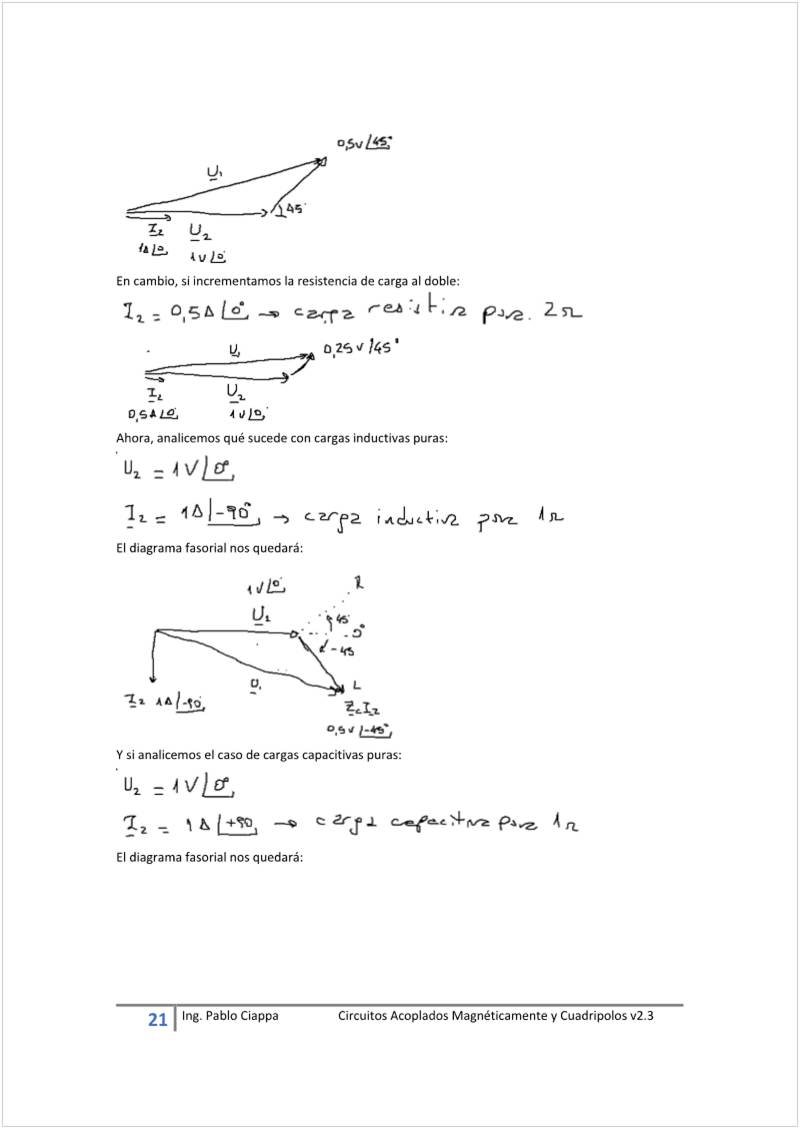 0,5V∠45°
U₁
45°
I₂
U₂
1A∠0°
1V∠0°
En cambio, si incrementamos la resistencia de carga al doble:
I₂ = 0,5A∠0° → carga resistiva pura. 2Ω
U₁
0,25V∠45°
I₂
U₂
0,5A∠0°
1V∠0°
Ahora, analicemos qué sucede con cargas inductivas puras:
U₂ = 1V∠0°
I₂ = 1A∠-90° → carga inductiva pura 1Ω
El diagrama fasorial nos quedará:
1V∠0°
R
U₂
45°
0°
-45
U₁
L
I₂ 1A∠-90°
Z꜀I₂
0,5V∠-45°
Y si analicemos el caso de cargas capacitivas puras:
U₂ = 1V∠0°
I₂ = 1A∠+90 → carga capacitiva pura 1Ω
El diagrama fasorial nos quedará:
21 Ing. Pablo Ciappa Circuitos Acoplados Magnéticamente y Cuadripolos v2.3